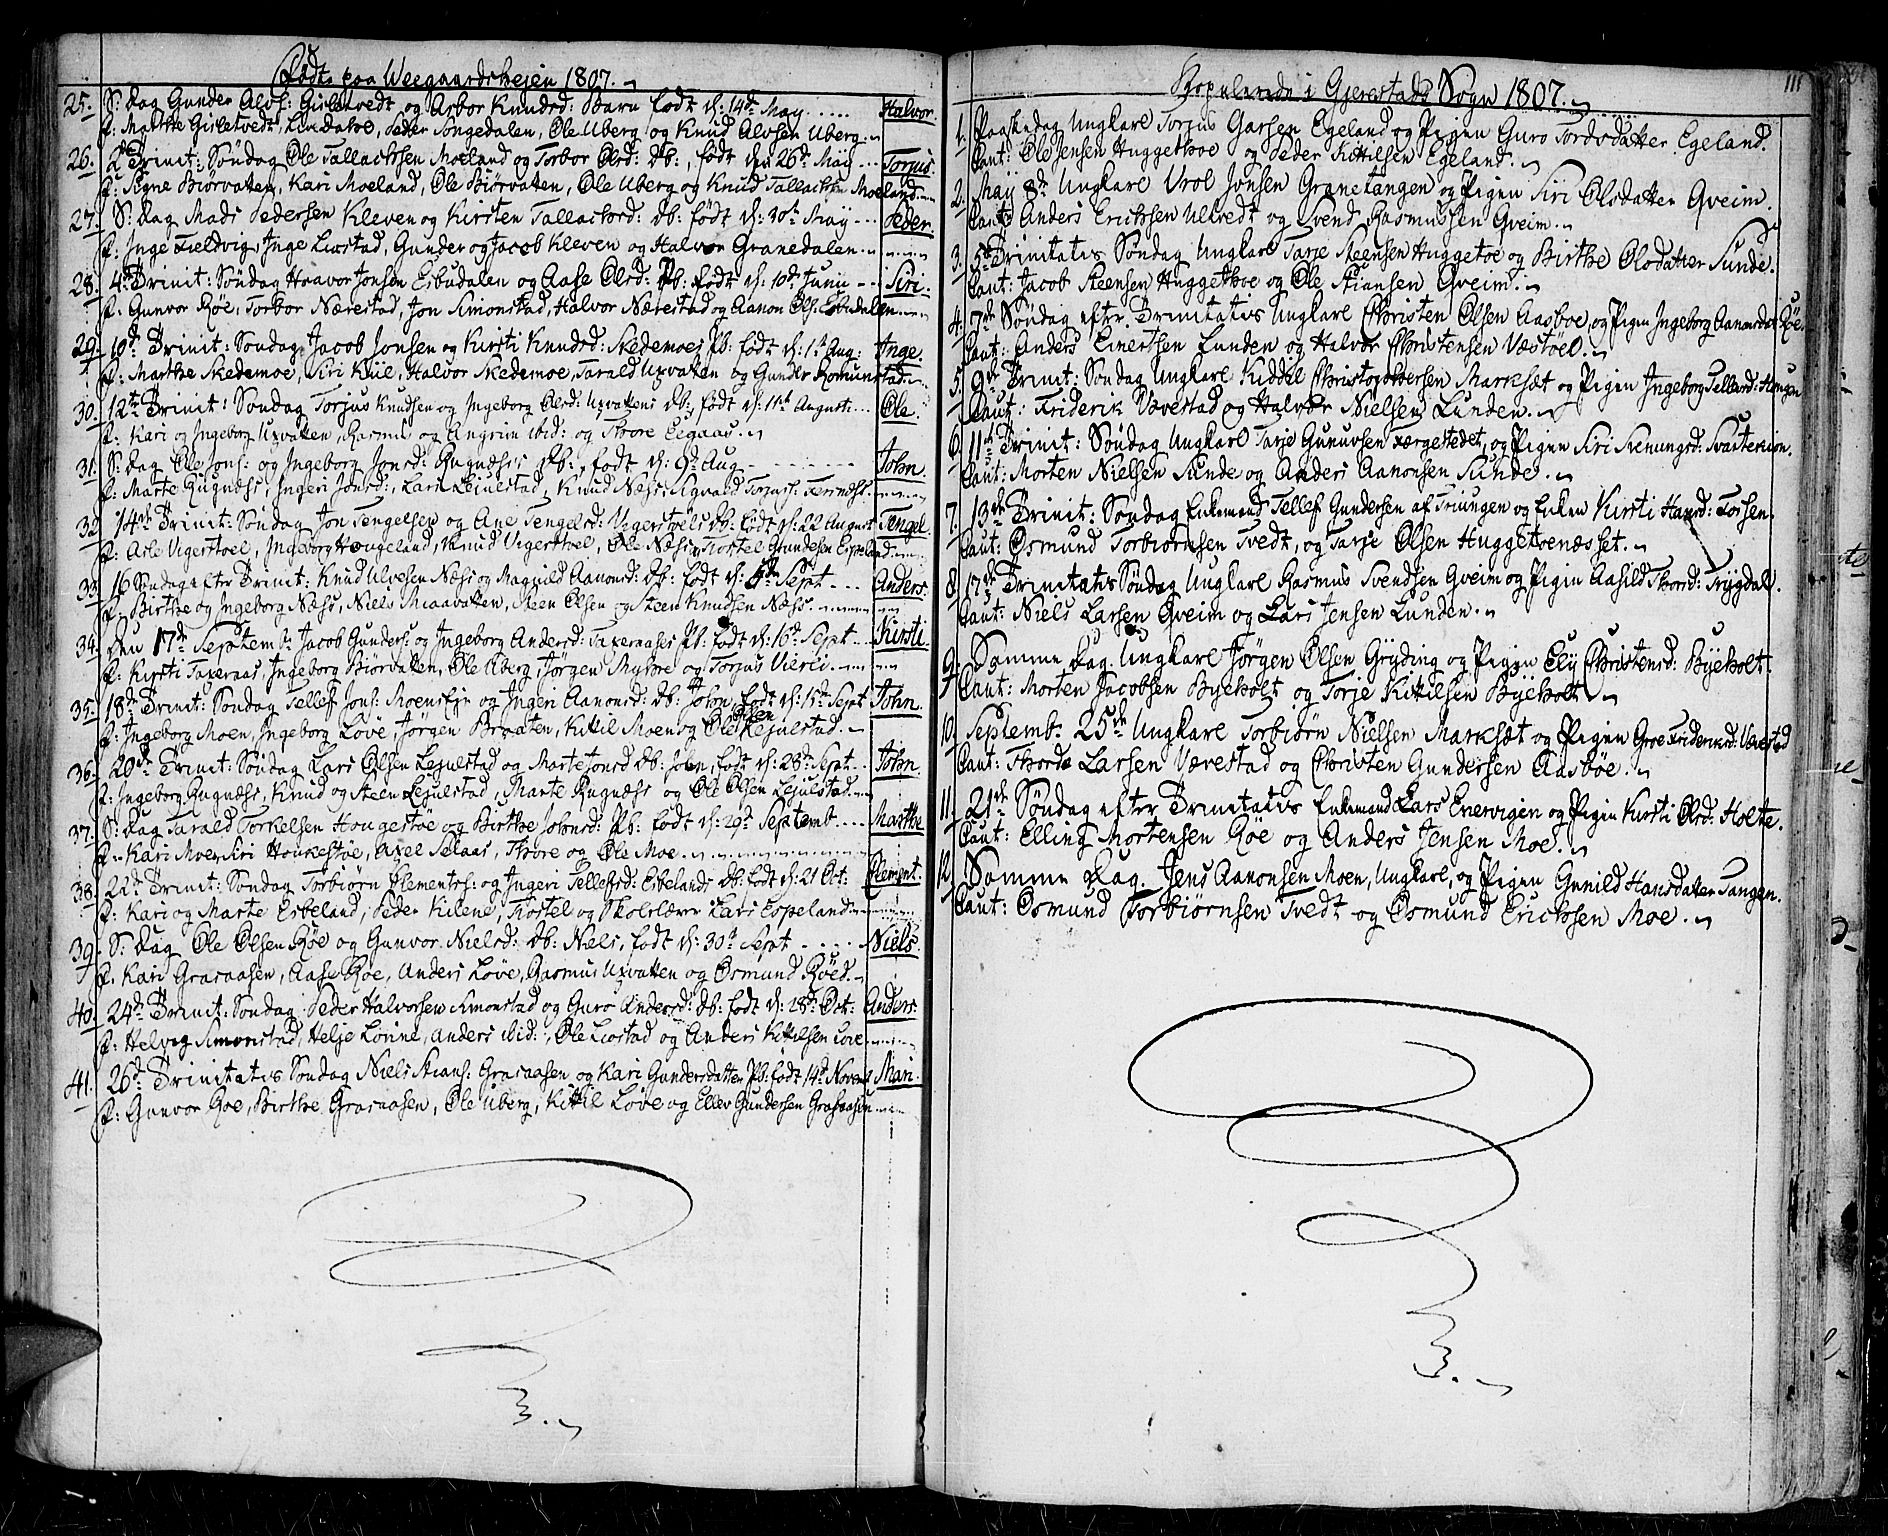 Fødte paa Weegaardsheien 1807.
25. S: Dag Gunder Alvs: Girletvedt og Asbor Knudsd: Barn født d: 14d May Halvor.
F: Marthe Girletvedt, Peder Songedalen, Ole Uberg og Knud Alvsen Uberg.
26. Trinit: Søndag Ole Tallachsen Moeland og Torbor Olsd: Db:, født den 26d May Torjus.
F: Signe Biørvatten, Kari Moeland, Ole Biørvatten, Ole Uberg og Knud Tallachsen Moeland.
27. S: Dag Mads Pedersen Kleven og Kirsten Tallachsd: Db: født d: 30d May Peder.
F: Inge Fieldvig, Inge Liostad, Gunder og Jacob Kleven og Halvor Granedalen.
28. 4d Trinit: Søndag Haavor Jonsen Esbudalen og Aase Olsd: Pb: født d: 10d Junii Siri.
F: Gunvor Røe, Torbor Nærestad, Jon Simonstad, Halvor Nærestad og Aanon Ols: Esbudalen.
29. 10d Trinit: Søndag Jacob Jonsen og Kirsti Knudsd: Skedemoes Pb: født d: 1d Aug: Inge.
F: Marthe Skedemoe, Siri Kiil, Halvor Skedemoe, Tarald Uxvatten og Gunder Romundstad.
30. 12te Trinit: Søndag Torjus Knudsen og Ingeborg Olsd: Uxvattens Db: født d: 11d Augusti Ole.
F: Kari og Ingeborg Uxvatten, Rasmus og Angrim ibid: og Thore Eegaas.
31. S: Dag Ole Jons: og Ingeborg Jonsd: Rugnæs's Db:, født d: 9d Aug John.
F: Marte Rugnæs, Ingeri Jonsd:, Lars Lejulstad, Knud Næs
32. 14de Trinit: Søndag Jon Tengelsen og Ane Tengelsd: Vegerstoels Db: født d: 22 August Tengel.
F: Asle Vigerstoel, Ingeborg Hougeland, Knud Vigerstoel, Ole Næs, Tostel Gundersen Espeland.
33. 16 Søndag efter Trinit: Knud Ulvesen Næs og Magnild Aanonsd: Db: født d: 5d Sept Anders.
F: Birthe og Ingeborg Næs, Niels Miaavatten, Steen Olsen og Steen Knudsen Næs.
34. Den 17d Septem: Jacob Gunders: og Ingeborg Andersd: Taxeraases Pb: født d: 16d Sept Kirsti.
F: Kirsti Taxeraas, Ingeborg Biorvatten, Ole Uberg, Jørgen Myhre og Torjus Vierli.
35. 18d Trinit: Søndag Tellef Jons: Moens og Ingeri Aanonsd: Db: John, født d: 15d Sept John.
F: Ingeborg Moen, Ingeborg Løve, Jørgen Braaten, Kittil Moen og Ole Olsen Lejulstad.
36. 20d Trinit: Søndag Lars Olsen Lejulstad og Marte Jonsd Db: John, født d: 28d Sept. John.
F: Ingeborg Rugnæs, Knud og Steen Lejulstad, Marte Rugnæs og Ole Olsen Lejulstad.
37. S: Dag Tarald Torkelsen Hougestøe og Birthe Johnsd: Pb: født d: 29d Septemb Marthe
F: Kari Moe, Siri Houkestøe, Axel Selaas, Thore og Ole Moe.
38. 22d Trinit: Søndag Torbiørn Clements: og Ingeri Tellefsd: Esbelands Db: født d: 21 Oct: Clement.
F: Kari og Marte Esbeland, Peder Kilene, Tostel og Skolelærer Lars Espeland.
39. S: Dag Ole Olsen Røe og Gunvor Nielsd: Db: Niels, født d: 30d Sept Niels.
F: Kari Grasaasen, Aase Røe, Anders Løve, Rasmus Uxvatten og Osmund Røed.
40. 24d Trinit: Søndag Peder Halvorsen Simonstad og Guro Andersd: Db: født d: 28d Oct: Anders.
F: Helvig Simonstad, Helje Lønne, Anders ibid:, Ole Liostad og Anders Kittilsen Løve
41. 26d Trinitatis Søndag Niels Stians: Grasaasen og Kari Gundersdatter Pb: født 14d Novemb Mari.
F: Gunvor Røe, Birthe Grasaasen, Ole Uberg, Kittil Løve og Ellev Gundersen Grasaasen
Copulerede i Gjerestads Sogn 1807.
111
1. Paaskedag Ungkarl Torjus Garsen Egeland og Pigen Guro Tordsdatter Egeland.
Caut: Ole Jensen Huggethoe og Peder Kittilsen Egeland.
2. Maji 8d Ungkarl Vrol Jonsen Granetangen og Pigen Siri Olsdatter Qveim.
Caut: Anders Ericksen Ulltvedt og Svend Rasmussen Qveim.
3. 5te Trinitatis Søndag Ungkarl Tarje Steensen Huggetoe og Birthe Olsdatter Sunde.
Caut: Jacob Steensen Huggethoe og Ole Stiansen Qveim.
4. 7de Søndag efter Trinitatis Ungkarl Christen Olsen Aasboe, og Pigen Ingeborg Aanonsdat Røe.
Caut: Anders Einertsen Lunden og Halvor Christensen Væstoel.
5. 9de Trinit: Søndag Ungkarl Kiddel Christophersen Marksæt og Pigen Ingeborg Tellevsd: Haugen
Caut: Friderik Vævestad og Halvor Nielsen Lunden.
6. 11te Trinit: Søndag Ungkarl Tarje Gunuvsen Færgestedet, og Pigen Siri Svenungsd: Svartetiøn.
Caut: Morten Nielsen Sunde og Anders Aanonsen Sunde.
7. 13de Trinit: Søndag Enkemand Tellef Gundersen af Triungen og Enken Kirsti Hansd: Fossen.
Caut: Osmund Torbiørnsen Tvedt, og Tarje Olsen Huggetvenæsset.
8. 17de Trinitatis Søndag Ungkarl Rasmus Svendsen Qveim og Pigen Aasild Thord: Trygdal.
Caut: Niels Larsen Qveim og Lars Jensen Lunden.
9. Samme Dag. Ungkarl Jørgen Olsen Gryding og Pigen Ely Christensd: Byeholt.
Caut: Morten Jacobsen Byeholt og Torje Kittilsen Byeholt
10. Septemb: 25de Ungkarl Torbiørn Nielsen Marksæt og Pigen Groe Frideriksd: Vævestad
Caut: Thord Larsen Vævestad og Christen Gundersen Aasbøe.
11. 21de Søndag efter Trinitatis Enkemand Lars Enervigen og Pigen Kirsti Olsd: Holte.
Caut: Elling Mortensen Røe og Anders Jensen Moe.
12. Samme Dag. Jens Aanonsen Moen, Ungkarl, og Pigen Gunild Hansdatter Tangen.
Caut: Osmund Torbiørnsen Tvedt og Osmund Ericksen Moe.